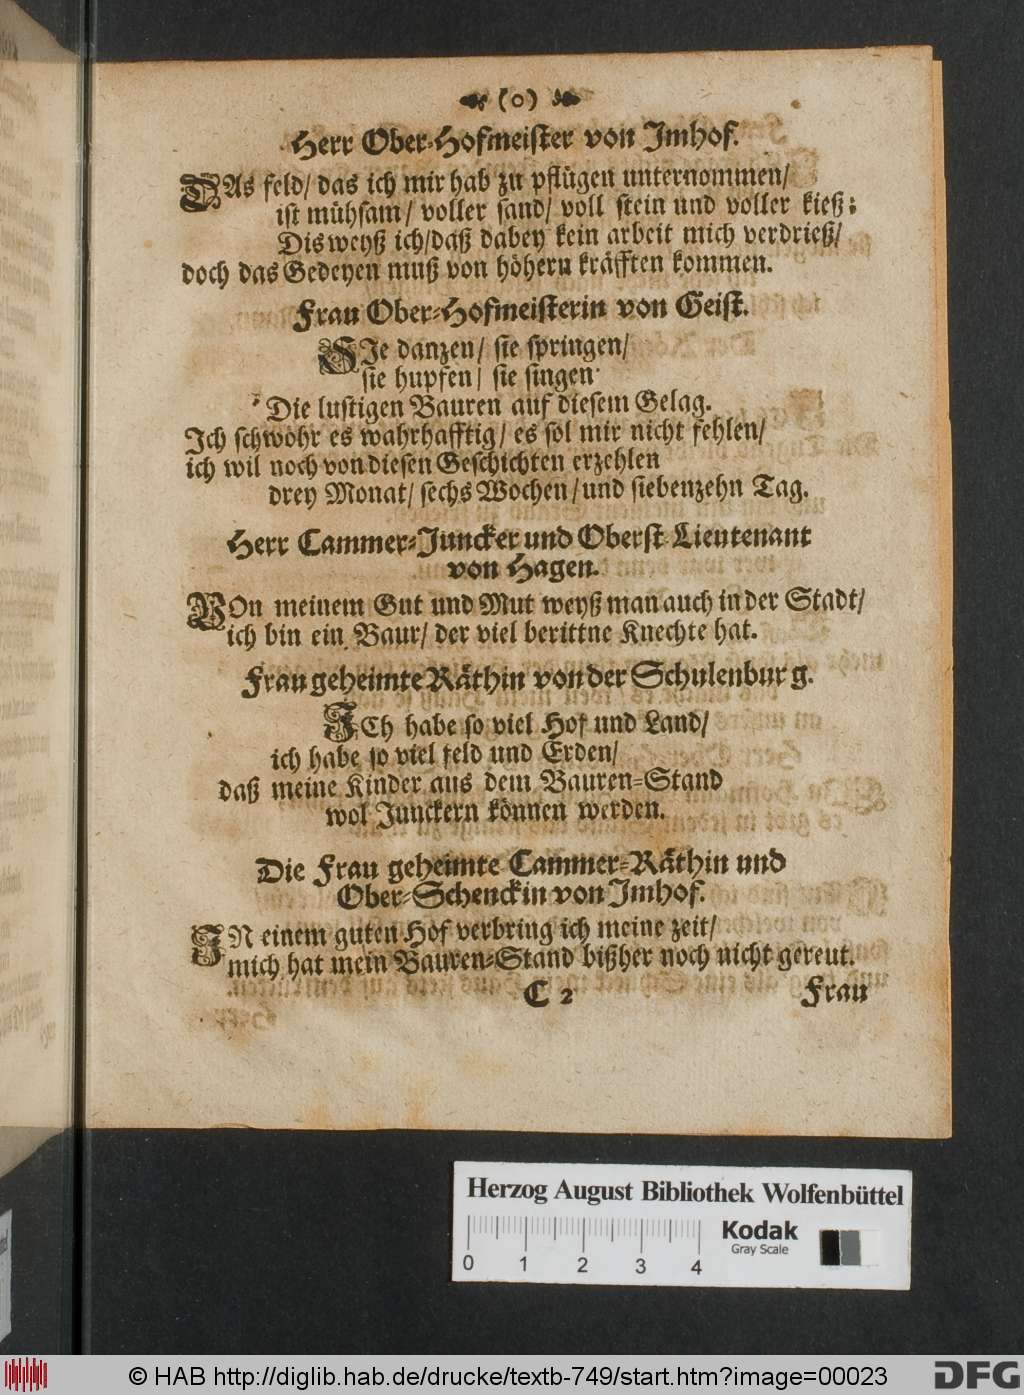 (o)
Herr Ober-Hofmeister von Imhof.
DAs feld/ das ich mir hab zu pflügen unternommen/
ist mühsam/ voller sand/ voll stein und voller kieß;
Dis weyß ich/ daß dabey kein arbeit mich verdrieß/
doch das Gedeyen muß von höhern kräfften kommen.
Frau Ober-Hofmeisterin von Geist.
SIe danzen/ sie springen/
sie hupfen/ sie singen
Die lustigen Bauren auf diesem Gelag.
Ich schwöhr es wahrhafftig/ es sol mir nicht fehlen/
ich wil noch von diesen Geschichten erzehlen
drey Monat/ sechs Wochen/ und siebenzehn Tag.
Herr Cammer-Juncker und Oberst-Lieutenant
von Hagen.
VOn meinem Gut und Mut weyß man auch in der Stadt/
ich bin ein Baur/ der viel berittne Knechte hat.
Frau geheimte Räthin von der Schulenburg.
ICh habe so viel Hof und Land/
ich habe so viel feld und Erden/
daß meine Kinder aus dem Bauren-Stand
wol Junckern können werden.
Die Frau geheimte Cammer-Räthin und
Ober-Schenckin von Imhof.
IN einem guten Hof verbring ich meine zeit/
mich hat mein Bauren-Stand bißher noch nicht gereut.
C 2 Frau
Herzog August Bibliothek Wolfenbüttel
Kodak
Gray Scale
0 1 2 3 4
© HAB http://diglib.hab.de/drucke/textb-749/start.htm?image=00023
DFG